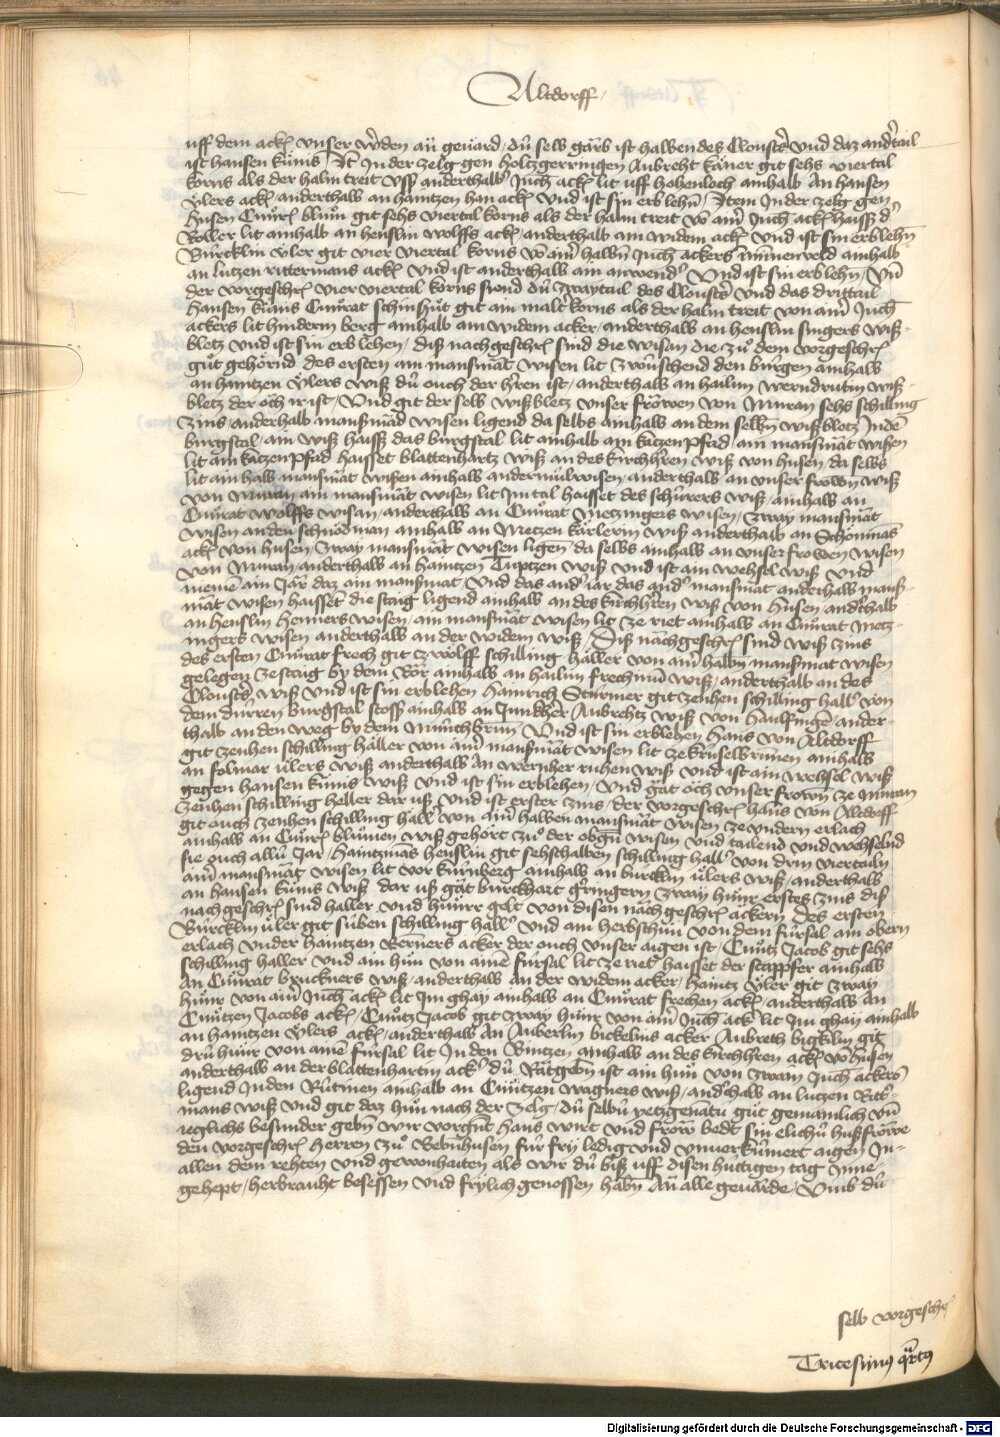 Altdorff
uff dem ackr̄ vnser wēden an geuärd / dü selb gärb ist halben des Clousters vnd daz andertail
ist hansen künis / It Jn der zelg gen holtzgerringen Aubrecht käner git sehs viertal
korns als der halm treit vss anderthalb Juch ackr̄ lit uff hohenloch ainhalb An hansen
ÿlers ackr̄ / anderthalb an haintzen han ackr̄ vnd ist sin erb lehen / Jtem Jn der zelg gen
husen Cunr̄ blům git sehs viertal korns als der halm treit vō aim Juch ackr̄ haisst dˢ
Roller lit ainhalb an henslin wolffs ackr̄ / anderthalb am widem ackr̄ vnd ist sin erblehn̄
Bürcklin ÿler git vier viertal korns vō aim halbn̄ Juch ackers ainhalb
an lutzen rittermans ackr̄ vnd ist anderthalb ain anwendˢ Vnd ist sin erblehn / Vn̄
der vorgeschr̄ vier viertal korns siond dü zwaytail des Clousters vnd das drittail
hansen künis Cunrat schinhüt git ain malt̄ korns als der halm treit von aim Juch
ackers lit hinderm berg ainhalb am widem acker / anderthalb an henslin singers wiß
bletz vnd ist sin erb lehen / diß nachgeschr̄ sind die wisan die zů dem vorgeschr̄
gůt gehörnd des ersten ain mansmāt wisen lit zwüschend den bürgen ainhalb
an haintzen ÿlers wiß dü ouch der hr̄en ist / anderthalb an hailin werndrutin wiß
bletz der öch ir ist / Vnd git der selb wißbletz vnser fröwen von Muran sehs schilling
zins / anderhalb mansmād wisen ligend da selbs ainhalb an dem selbn̄ wißbletz Jn dē
bürgstal / ain wiß haisst das bürgstal lit ainhalb am katzenpfad / ain mansmāt wisen
lit am katzenpfad haisset blattenhartz wiß an des kirchhr̄en wiß von husen / da selbs
lit ain halb mansmāt wisen ainhalb an der mülwisen / anderthalb an vnser frowen wiß
von Muran ain mansmāt wisen lit Jm tal haisset des schürers wiß / ainhalb an
Cunrat wolffs wisan / anderthalb an Cunrat Metzingers wisen / zway mansmāt
wisen an den schnödman ainhalb an Metzen kärlerin wiß anderthalb an Schönmās
ackr̄ von husen / zway mansmāt wisen ligen̄ da selbs ainhalb an vnser frowen wisen
von Muran / anderthalb an haintzen wiß vnd ist ain wehsel wiß vnd
niemē ain Jār daz ain mansmat / vnd das andˢ iar das andˢ mansmāt anderhalb mans
māt wisen haisset die staig ligend ainhalb an des kirchhr̄en wiß von husen / andthalb
an henslin henners wisen / ain mansmāt wisen lit ze riet ainhalb an Cunrat metz
ingers wisen anderthalb an der widem wiß / Diß nāchgeschr̄ sind wiß zins
des ersten Cunrat frech git zwölff schilling häller von aim halbn̄ mansmat wisen
gelegen ze staig by dem Rör ainhalb an hailin frechinun wiß / anderthalb an des
Clousters wiß vnd ist sin erblehen hainrich Stürmer git zenhen schilling hallˢ von
dem dürren bürgstal stosst ainhalb an Junckhˢr Aubrehtz wiß von / ander
thalb an den weg by dem Münichbrunn̄ Vnd ist sin erblehen hans von Altdorff
git zenhen schilling häller von aim mansmāt wisen lit ze krüselbrunnen ainhalb
an folmar ülers wiß anderthalb An wernher ruhen wiß vnd ist ain wehsel wiß
gegen hansen künis wiß vnd ist sin erblehen / Vnd gāt öch vnser frown̄ ze Muran
zenhen schilling heller dar uß vnd ist erster zins / der vorgeschr̄ hans von Altdorff
git ouch zenhen schilling hallˢ von aim halben mansmāt wisen ze vndern erlach
ainhalb an Cunr̄ blümen wiß gehört zů der obgn̄ wisen vnd tailend vnd wehselnd
sie ouch allü Jar / haintzmās henslin git sehschalben schilling hallˢ von drin viertailn
aim mansmāt wisen lit vor kürnberg ainhalb an burcklin ülers wiß / anderthalb
an hansen künis wiß dar uß gāt burckhart grinigern zway hünr erstes zins diß
nachgeschr̄ sind haller vnd hünrr gelt von disen nāchgeschr̄ ackern des ersten
Bürcklin üler git süben schilling hallˢ vnd ain herbsthun von dem fürsal am obern
erlach vnder haintzen Renners acker der ouch vnser aigen ist / Cuntz Jacob git sehs
schilling haller vnd ain hůn von ainē fürsal lit ze riet haisset der stapffer ainhalb
An Cunrat bruckners wiß / anderthalb an der widem acker / haintz ÿler git zway
hünr von aim Juch ackr̄ lit Jm ghay ainhalb an Cunrat frechen ackr̄ / anderthalb An
Cuntzen Jacobs ackr̄ / Cuntz Jacob git zway hünr von aim Juch ackˢ lit Jm ghay ainhalb
an haintzen ÿlers ackr̄ / anderthalb An Auberlin bickelins acker Aubreth bigklin git
drü hünr von ainē fürsal lit Jn den Wintzen ainhalb an des kirchhr̄en ackr̄ vō husen
anderthalb an der blattenhartin ackˢ dü Rātgebn̄ ist ain hůn von zwain Juch ackers
ligend Jn den Rütinen ainhalb an Cuntzen wagners wiß / andˢhalb an lutzen Ritˢ
mans wiß vnd git daz hůn nach der zelg / dü selbü yetzgenātu gůt gemainlich vn̄
ieglichs besunder gebn̄ wir vorgn̄t hans wirt vnd frow bedt sin elichü hußfrowe
den vorgeschr̄ herren zů Bebnhusen für fry ledig vnd vnuerkümert aigen Jn
allen dem rehten vnd gewonhaiten als wir dü biß uff disen hüttigen tag Jnne
gehept / herbrauht besessen vnd frylich genossen habn̄ An alle geuärde / Vmb dü
selb vorgeschr̄
Tricesimus qrtus
Digitalisierung gefördert durch die Deutsche Forschungsgemeinschaft - DFG